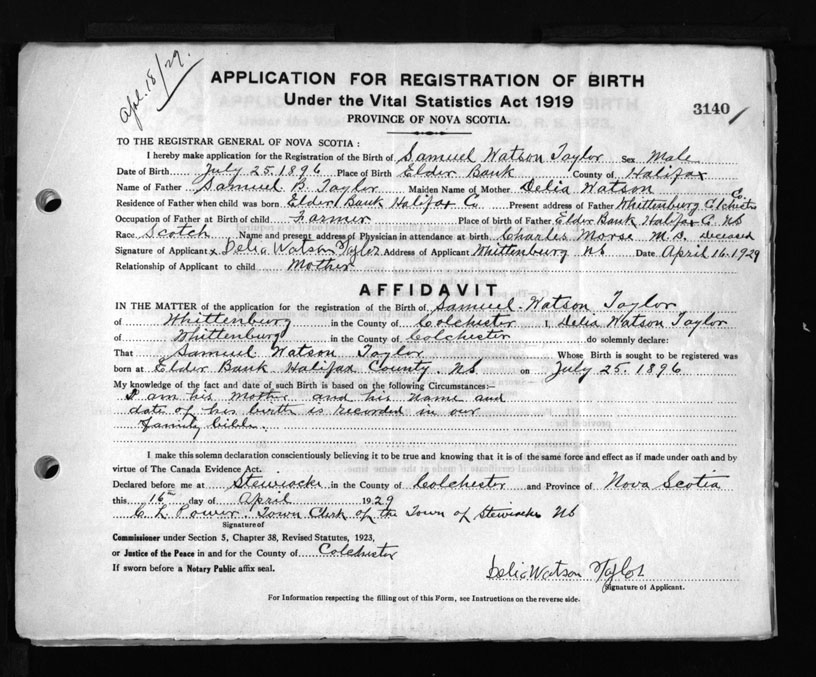 Apl. 18/29.
APPLICATION FOR REGISTRATION OF BIRTH
Under the Vital Statistics Act 1919
3140
PROVINCE OF NOVA SCOTIA.
TO THE REGISTRAR GENERAL OF NOVA SCOTIA :
I hereby make application for the Registration of the Birth of Samuel Watson Taylor Sex Male
Date of Birth July 25. 1896 Place of Birth Elder Bank County of Halifax
Name of Father Samuel B. Taylor Maiden Name of Mother Delia Watson
Residence of Father when child was born Elder Bank Halifax Co Present address of Father Whittenburg Colchester Co
Occupation of Father at Birth of child Farmer Place of birth of Father Elder Bank Halifax Co. NS
Race Scotch Name and present address of Physician in attendance at birth Charles Morse M.D. deceased
Signature of Applicant x Delia Watson Taylor Address of Applicant Whittenburg NS Date April 16. 1929
Relationship of Applicant to child Mother
AFFIDAVIT
IN THE MATTER of the application for the registration of the Birth of Samuel Watson Taylor
of Whittenburg in the County of Colchester I, Delia Watson Taylor
of Whittenburg in the County of Colchester do solemnly declare:
That Samuel Watson Taylor Whose Birth is sought to be registered was
born at Elder Bank Halifax County. NS on July 25. 1896
My knowledge of the fact and date of such Birth is based on the following Circumstances:—
I am his Mother and his name and
date of his birth is recorded in our
Family bible.
I make this solemn declaration conscientiously believing it to be true and knowing that it is of the same force and effect as if made under oath and by
virtue of The Canada Evidence Act.
Declared before me at Stewiacke in the County of Colchester and Province of Nova Scotia
this 16th day of April 1929
C. L. Power. Town Clerk of the Town of Stewiacke NS
Signature of
Commissioner under Section 5, Chapter 38, Revised Statutes, 1923,
or Justice of the Peace in and for the County of Colchester
If sworn before a Notary Public affix seal.
Delia Watson Taylor
Signature of Applicant.
For Information respecting the filling out of this Form, see Instructions on the reverse side.